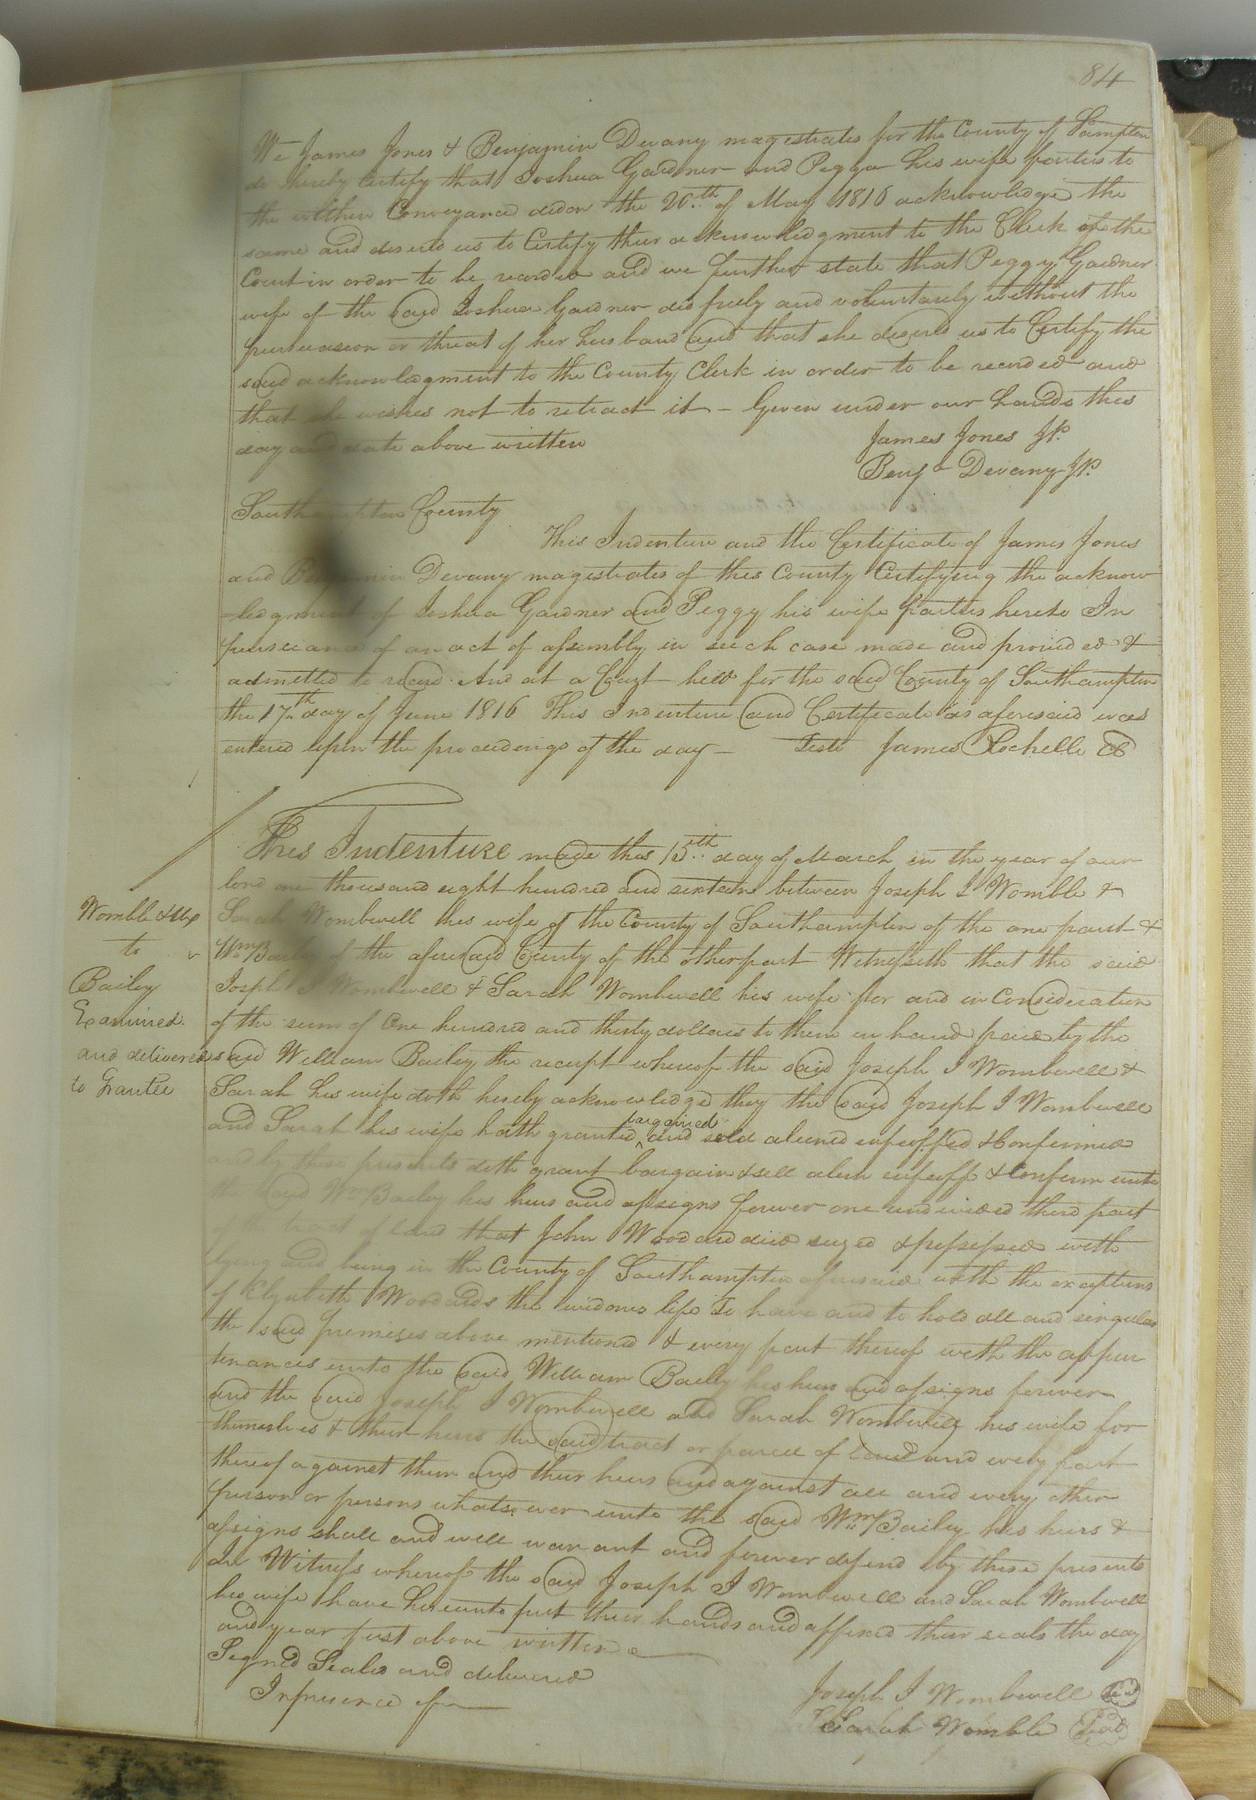 84
We James Jones & Benjamin Devany magestrates for the County of Sampton
do hereby Certify that Joshua Gardner and Pegga his wife parties to
the within Conveyance did on the 20th of May 1816 acknowledge the
same and desired us to Certify their acknowledgment to the Clerk of the
Court in order to be recorded and we further state that Peggy Gardner
wife of the said Joshua Gardner did freely and voluntarely without the
persuasion or threat of her husband and that she desired us to Certify the
said acknowledgment to the County Clerk in order to be recorded and
that she wishes not to retract it – Given under our hands this
day and date above written
James Jones JP.
Benj a Devany JP.
Southampton County
This Indenture and the Certificate of James Jones
and Benjamin Devany magestrates of this County Certifying the acknow
-ledgment of Joshua Gardner and Peggy his wife parties hereto In
pursuance of an act of assembly in such case made and provided &
admitted to record. And at a Court held for the said County of Southampton
the 17th day of June 1816 This Indenture and Certificate as aforesaid was
entered upon the proceedings of the day – Teste James Rochelle
This Indenture made this 15th day of March in the year of our
lord one thousand eight hundred and sixteen between Joseph I Womble &
Sarah Wombwell his wife of the County of Southampton of the one part &
Wm Bailey of the aforesaid County of the other part Witnesseth that the said
Joseph I Wombwell & Sarah Wombwell his wife for and in Consideration
of the sum of One hundred and thirty dollars to them in hand paid by the
said William Bailey the receipt whereof the said Joseph I Wombwell &
Sarah his wife doth hereby acknowledge they the said Joseph I Wombwell
bargained
and Sarah his wife hath granted and sold aliened enfeoffed & Confirmed
and by these presents doth grant bargain & sell alien enfeoff & Confirm unto
the said Wm Bailey his heirs and assigns forever one undivided third part
tract of land that John Woodard died seized & possessed with
lying and being in the County of Southampton aforesaid with the exceptions
of Elizabeth Woodards the widows life To have and to hold all and singular
the said premises above mentioned & every part thereof with the appur
tenances unto the said William Bailey his heirs and assigns forever
and the said Joseph I Wombwell and Sarah Wombwell his wife for
themselves & their heirs the said tract or parcel of land and every part
thereof against them and their heirs and against all and every other
person or persons whatsoever unto the said Wm Bailey his heirs &
assigns shall and will warrant and forever defend by these presents
In Witness whereof the said Joseph I Wombwell and Sarah Wombwell
his wife have hereunto put their hands and affixed their seals the day
and year first above written
Signed Sealed and delivered
In presence of
Joseph I Wombwell
Sarah Womble Seal
Womble & Ux
to
Bailey
Examined
and delivered
to Grantee